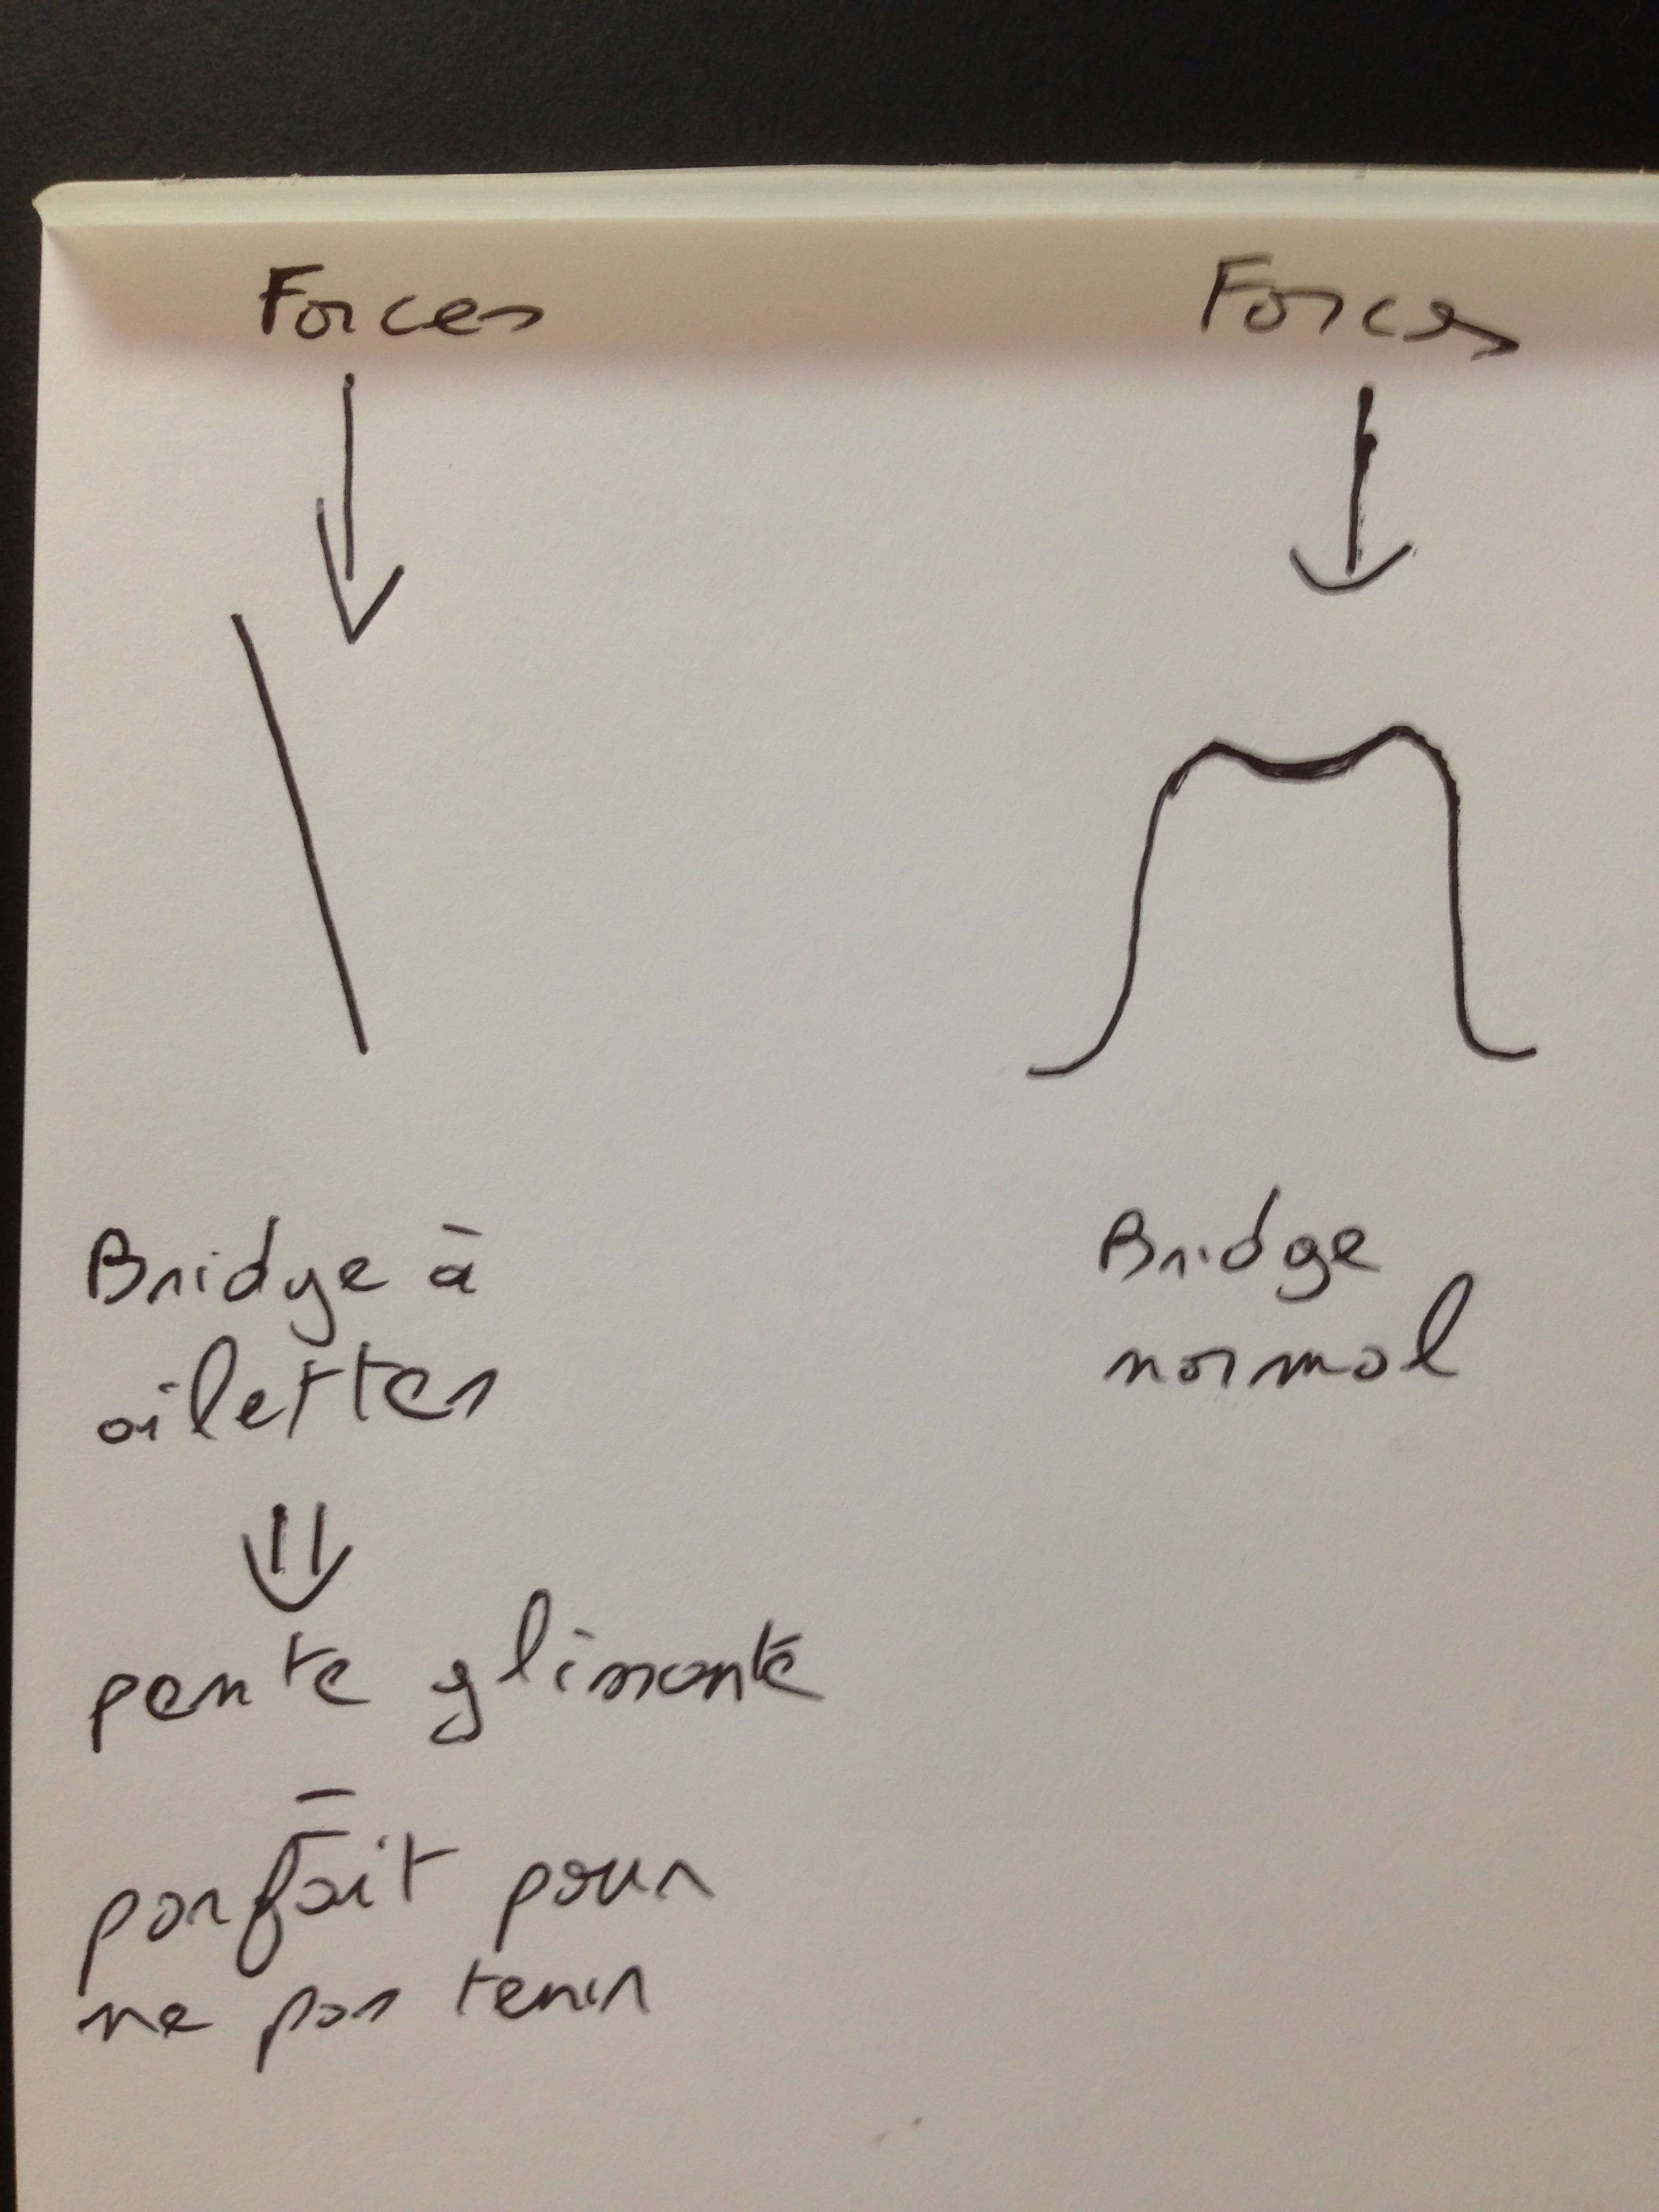 Forces
Forces
Bridge à
ailettes
Bridge
normal
pente glissante
=
parfait pour
ne pas tenir